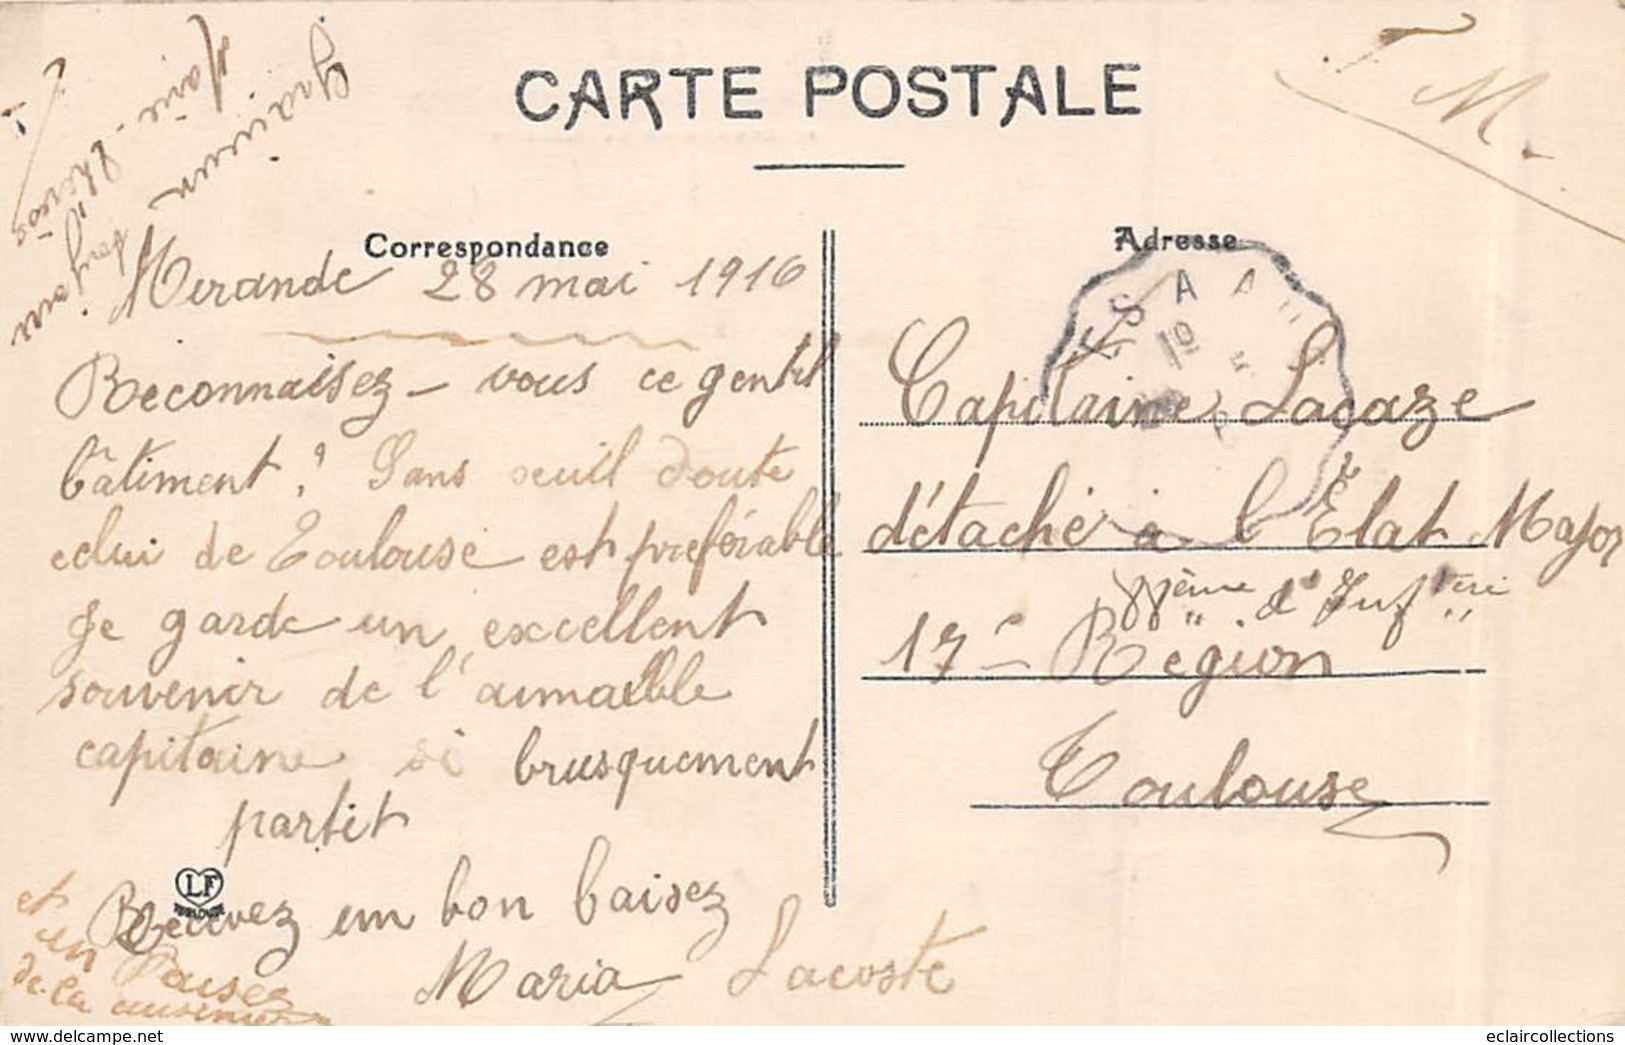 CARTE POSTALE
F M.
Correspondance
Adresse
Mirande 28 mai 1916
Reconnaissez-vous ce gentil
bâtiment ? Sans seuil doute
celui de Toulouse est préférable
Je garde un excellent
souvenir de l'aimable
capitaine si brusquement
partit
Recevez un bon baisez
Maria Lacoste
et un Baisez
de la cuisinière
LF
TOULOUSE
Capitaine Lacaze
détaché à l'Etat Major
d'Inf
17e Region
Toulouse
eclaircollections